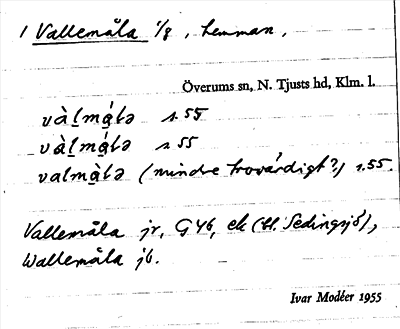 1 Vallemåla 1/8, hemman,
Överums sn, N. Tjusts hd, Klm. l.
vàḻmá̱lə s. 55
vàḻmá̱lə s 55
valmà̱lə (mindre trovärdigt?) s. 55.
Vallemåla jr, G46, ek (bl. Sedingsjö),
Wallemåla jb.
Ivar Modéer 1955